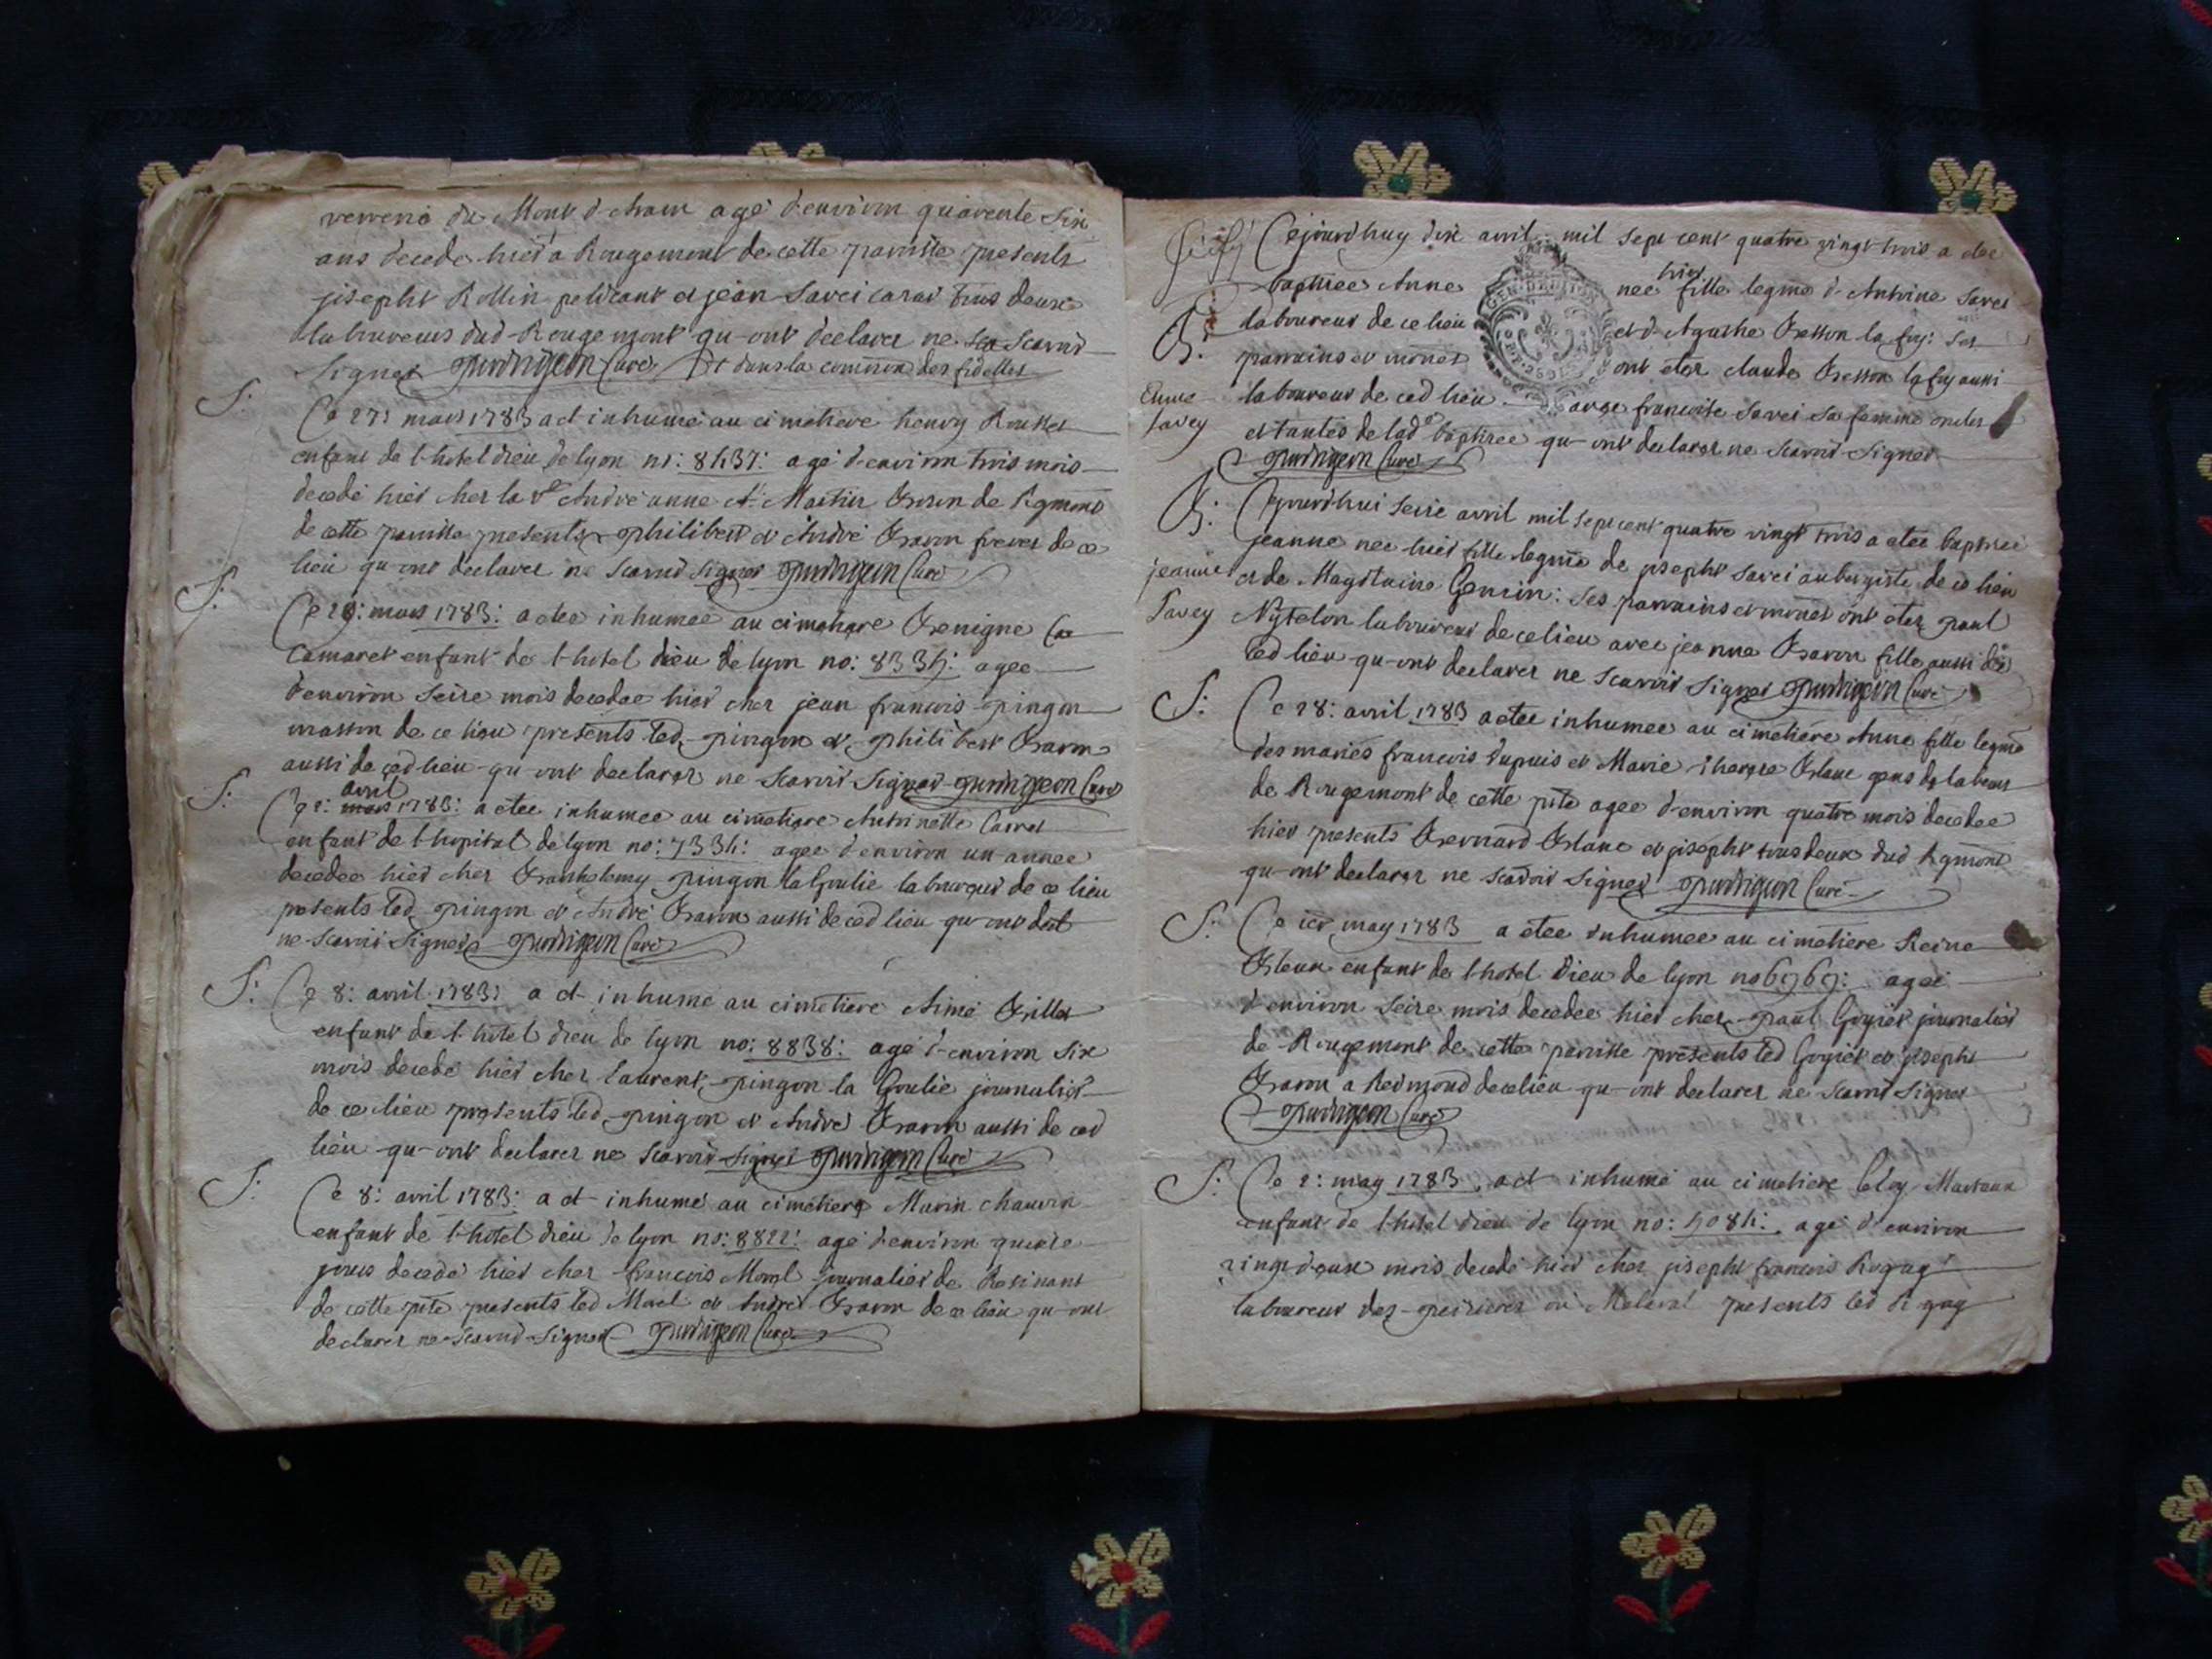 du Mont d agé d'environ quarente six
ans decedé hier a Rougemont de cette paroisse presents
joseph Rollin et jean Savei tous deux
laboureurs dud Rougemont qu-ont declarer ne scavoir
signer curé dans la des fidelles
S:
Ce 27: mars 1783 a et inhumé au cimetiere henry
enfant de l-hotel dieu de lyon no: 8437: agé d'environ trois mois
decedé hier cher la ve André anne de
de cette paroisse presents philibert et André Baron freres de ce
lieu qu-ont declarer ne scavoir signer curé
S:
Ce 29: mars 1783: a etee inhumee au cimetiere Benigne
Camaret enfant de l-hotel dieu de lyon no: 8334: agee
d'environ seize mois decedee hier cher jean francois pingon
masson de ce lieu presents led pingon et philibert Baron
aussi de ced lieu qu-ont declarer ne scavoir signer curé
S:
avril
Ce 2: mars 1783: a etee inhumee au cimetiere Antoinette
enfant de l-hopital de lyon no: 7334: agee d'environ un annee
decedee hier cher Barthelemy pingon la Goulie laboureur de ce lieu
presents led pingon et André Baron aussi de ced lieu qu-ont
ne scavoir signer curé
S:
Ce 8: avril 1783: a et inhumé au cimetiere Aimé
enfant de l-hotel dieu de lyon no: 8838: agé d-environ six
mois decedé hier cher Laurent pingon la Goulie journalier
de ce lieu presents led pingon et André Baron aussi de ced
lieu qu-ont declarer ne scavoir signer curé
S:
Ce 8: avril 1783: a et inhumé au cimetiere Marin chauvin
enfant de l-hotel dieu de lyon no: 8822: agé d'environ quinze
jours decedé hier cher francois Morel journalier de Resinand
de cette pste presents led Morel et André Baron de ce lieu qu-ont
declarer ne scavoir signer curé
Cejourd'huy dix avril mil sept cent quatre vingt trois a etee
baptisee Anne nee hier fille legme d Antoine Savei
B:
laboureur de ce lieu et d Agathe Besson la fuj: ses
parrains et ont eter claude Besson la fuj aussi
Anne
Savey
laboureur de ced lieu avec francoise Savei sa femme oncles
et tantes de lade baptisee qu-ont declarer ne scavoir signer
curé
B:
Cejourd'hui seize avril mil sept cent quatre vingt trois a etee baptisee
jeanne nee hier fille legme de joseph Savei aubergiste de ce lieu
jeanne
Savey
et de Magdelaine ses parrains et ont eter paul
laboureur de ce lieu avec jeanne Baron fille aussi de
ced lieu qu-ont declarer ne scavoir signer curé
S:
Ce 28: avril 1783 a etee inhumee au cimetiere Anne fille legme
des mariés francois Dupuis et Marie Blanc gens de labeur
de Rougemont de cette pste agee d'environ quatre mois decedee
hier presents Bernard Blanc et joseph tous deux dud
qu-ont declarer ne scavoir signer curé
S:
Ce ier may 1783 a etee inhumee au cimetiere Reine
enfant de l-hotel Dieu de lyon no 6969: ageé
d'environ seize mois decedee hier cher paul Goyiet journalier
de Rougemont de cette paroisse presents led Goyiet et joseph
Baron a de ce lieu qu-ont declarer ne scavoir signer
curé
S:
Ce 2: may 1783: a et inhumé au cimetiere
enfant de l-hotel dieu de lyon no: 4084: agé d'environ
vingt deux mois decedé hier cher joseph francois
laboureur des presents led